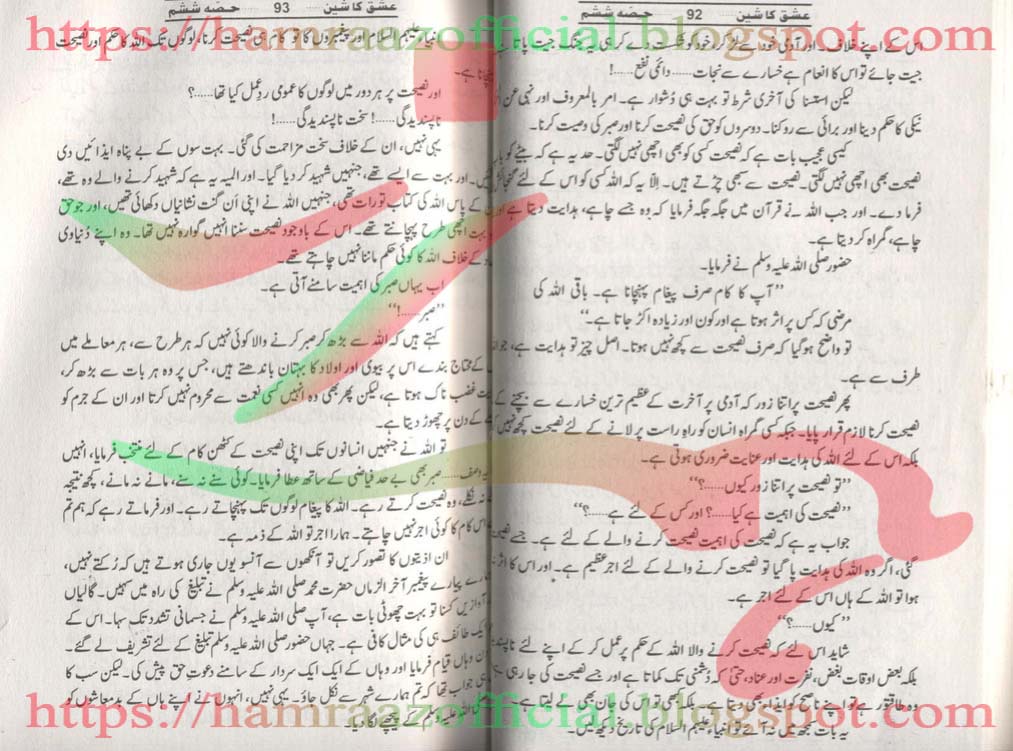 عشق کا شین ...... 92 ...... حصّہ ششم
اس کے اپنے خلاف۔ اور آدمی خود سے لڑ کر، خود کو شکست دے کر ہی یہ جنگ جیت پاتا
جیت جائے تو اس کا انعام ہے خسارے سے نجات...... دائمی نفع......!
لیکن استثنا کی آخری شرط تو بہت ہی دُشوار ہے۔ امر بالمعروف اور نہی عن
نیکی کا حکم دینا اور برائی سے روکنا۔ دوسروں کو حق کی نصیحت کرنا اور صبر کی وصیت کرنا۔
کیسی عجیب بات ہے کہ نصیحت کسی کو بھی اچھی نہیں لگتی۔ حد یہ ہے کہ بیٹے کو
نصیحت بھی اچھی نہیں لگتی۔ نصیحت سے سبھی چڑتے ہیں۔ اِلّا یہ کہ اللہ کسی کو اس کے لئے
فرما دے۔ اور جب اللہ نے قرآن میں جگہ جگہ فرمایا کہ وہ جسے چاہے، ہدایت دیتا ہے اور
چاہے، گمراہ کر دیتا ہے۔
حضور صلی اللہ علیہ وسلم نے فرمایا۔
”آپ کا کام صرف پیغام پہنچانا ہے۔ باقی اللہ کی
مرضی کہ کس پر اثر ہوتا ہے اور کون اور زیادہ اکڑ جاتا ہے۔“
تو واضح ہو گیا کہ صرف نصیحت سے کچھ نہیں ہوتا۔ اصل چیز تو ہدایت ہے، جو
طرف سے ہے۔
پھر نصیحت پر اتنا زور کہ آدمی پر آخرت کے عظیم ترین خسارے سے بچنے کے
نصیحت کرنا لازم قرار پایا۔ جبکہ کسی گمراہ انسان کو راہِ راست پر لانے کے لئے نصیحت کچھ نہیں
بلکہ اس کے لئے اللہ کی ہدایت اور عنایت ضروری ہوتی ہے۔
”تو نصیحت پر اتنا زور کیوں......؟“
”نصیحت کی اہمیت ہے کیا......؟ اور کس کے لئے ہے......؟“
جواب یہ ہے کہ نصیحت کی اہمیت نصیحت کرنے والے کے لئے ہے۔ جسے
گئی، اگر وہ اللہ کی ہدایت پا گیا تو نصیحت کرنے والے کے لئے اجر عظیم ہے۔ اور اس کا اثر
ہوا تو اللہ کے ہاں اس کے لئے اجر ہے۔
”کیوں......؟“
شاید اس لئے کہ نصیحت کرنے والا اللہ کے حکم پر عمل کر کے اپنے لئے
بلکہ بعض اوقات بغض، نفرت اور عناد، حتیٰ کہ دُشمنی تک کماتا ہے اور جسے نصیحت کی جا رہی
وہ طاقتور ہے تو اپنے ناصح کو ایذا بھی دیتا ہے۔ بلکہ کبھی تو اس کی جان بھی لے لیتا ہے۔
یہ بات سمجھ میں نہ آئے تو انبیاء علیہم السلام کی تاریخ دیکھ لیں۔
عشق کا شین ...... 93 ...... حصّہ ششم
انبیاء علیہم السلام اور پیغمبروں کا تو کام ہی نصیحت کرنا، لوگوں تک اللہ کا حکم اور نصیحت
پہنچانا ہے۔
اور نصیحت پر ہر دور میں لوگوں کا عمومی ردِعمل کیا تھا......؟
ناپسندیدگی......! سخت ناپسندیدگی......!
یہی نہیں، ان کے خلاف سخت مزاحمت کی گئی۔ بہت سوں کے بے پناہ ایذائیں دی
گئیں۔ اور بہت سے ایسے تھے، جنہیں شہید کر دیا گیا۔ اور المیہ یہ ہے کہ شہید کرنے والے وہ تھے،
جن کے پاس اللہ کی کتاب تورات تھی، جنہیں اللہ نے اپنی اَن گنت نشانیاں دکھائی تھیں، اور جو حق
بہت اچھی طرح پہچانتے تھے۔ اس کے باوجود نصیحت سننا انہیں گوارہ نہیں تھا۔ وہ اپنے دُنیاوی
کے خلاف اللہ کا کوئی حکم ماننا نہیں چاہتے تھے۔
اب یہاں صبر کی اہمیت سامنے آتی ہے۔
”صبر......!“
کہتے ہیں کہ اللہ سے بڑھ کر صبر کرنے والا کوئی نہیں کہ ہر طرح سے، ہر معاملے میں
کے محتاج بندے اس پر بیوی اور اولاد کا بہتان باندھتے ہیں، جس پر وہ ہر بات سے بڑھ کر،
غضب ناک ہوتا ہے، لیکن پھر بھی وہ انہیں کسی نعمت سے محروم نہیں کرتا اور ان کے جرم کو
کے دن پر چھوڑ دیتا ہے۔
تو اللہ نے جنہیں انسانوں تک اپنی نصیحت کے کٹھن کام کے لئے منتخب فرمایا، انہیں
یہ وصف...... صبر بھی بے حد فیاضی کے ساتھ عطا فرمایا۔ کوئی سنے نہ سنے، مانے نہ مانے، کچھ نتیجہ
نہ نکلے، وہ نصیحت کرتے رہے۔ اللہ کا پیغام لوگوں تک پہنچاتے رہے۔ اور فرماتے رہے کہ ہم تم
اس کام کا کوئی اجر نہیں چاہتے۔ ہمارا اجر تو اللہ کے ذمہ ہے۔
ان اذیتوں کا تصور کریں تو آنکھوں سے آنسو یوں جاری ہوتے ہیں کہ رُکتے نہیں،
پیارے پیغمبر آخر الزماں حضرت محمد صلی اللہ علیہ وسلم نے تبلیغ کی راہ میں سہیں۔ گالیاں
آوازیں کسنا تو بہت چھوٹی بات ہے، آپ صلی اللہ علیہ وسلم نے جسمانی تشدد تک سہا۔ اس کے
ایک طائف ہی کی مثال کافی ہے۔ جہاں حضور صلی اللہ علیہ وسلم تبلیغ کے لئے تشریف لے گئے۔
دن وہاں قیام فرمایا اور وہاں کے ایک ایک سردار کے سامنے دعوتِ حق پیش کی۔ لیکن سب کا
ہی جواب تھا کہ تم ہمارے شہر سے نکل جاؤ۔ یہی نہیں، انہوں نے اپنے ہاں کے بدمعاشوں کو
صلی اللہ علیہ وسلم کے پیچھے لگا دیا۔
https://hamraazofficial.blogspot.com
https://hamraazofficial.blogspot.com